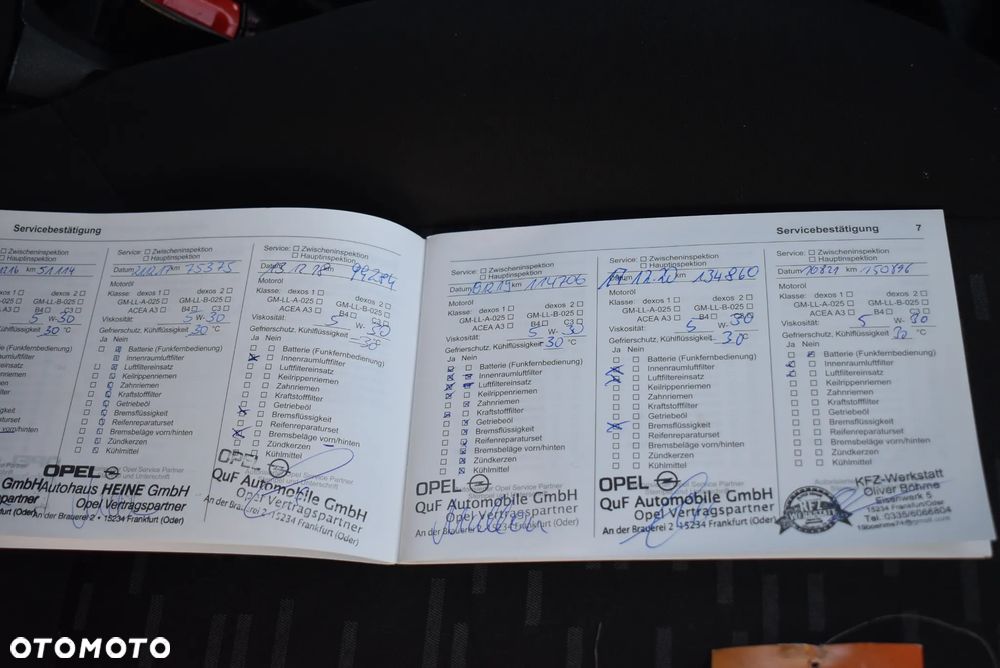 Servicebestätigung
km 51114
xos 1
L-A-025
EA A3
dexos 2
GM-LL-B-025
B4 C3
5 W-30
Kühlflüssigkeit 30 °C
(Funkfernbedienung)
raumluftfilter
ereinsatz
nriemen
emen
filter
gkeit
raturset
vorn/hinten
GmbH
partner
urt (Oder)
Service: Zwischeninspektion
Hauptinspektion
Datum km 75375
Motoröl
Klasse: dexos 1 dexos 2
GM-LL-A-025 GM-LL-B-025
ACEA A3 B4 C3
Viskosität: 5 W-30
Gefrierschutz, Kühlflüssigkeit 30 °C
Ja Nein
Batterie (Funkfernbedienung)
Innenraumluftfilter
Luftfiltereinsatz
Keilrippenriemen
Zahnriemen
Kraftstofffilter
Getriebeöl
Bremsflüssigkeit
Reifenreparaturset
Bremsbeläge vorn/hinten
Zündkerzen
Kühlmittel
OPEL Opel Service Partner
Autohaus HEINE GmbH
Opel Vertragspartner
An der Brauerei 2 • 15234 Frankfurt (Oder)
Service: Zwischeninspektion
Hauptinspektion
Datum km 99284
Motoröl
Klasse: dexos 1 dexos 2
GM-LL-A-025 GM-LL-B-025
ACEA A3 B4 C3
Viskosität: 5 W-30
Gefrierschutz, Kühlflüssigkeit -30 °C
Ja Nein
Batterie (Funkfernbedienung)
Innenraumluftfilter
Luftfiltereinsatz
Keilrippenriemen
Zahnriemen
Kraftstofffilter
Getriebeöl
Bremsflüssigkeit
Reifenreparaturset
Bremsbeläge vorn/hinten
Zündkerzen
Kühlmittel
OPEL Opel Service Partner
QuF Automobile GmbH
Opel Vertragspartner
An der Brauerei 2 15234 Frankfurt (Oder)
Servicebestätigung 7
Service: Zwischeninspektion
Hauptinspektion
Datum km 114706
Motoröl
Klasse: dexos 1 dexos 2
GM-LL-A-025 GM-LL-B-025
ACEA A3 B4 C3
Viskosität: 5 W-30
Gefrierschutz, Kühlflüssigkeit 30 °C
Ja Nein
Batterie (Funkfernbedienung)
Innenraumluftfilter
Luftfiltereinsatz
Keilrippenriemen
Zahnriemen
Kraftstofffilter
Getriebeöl
Bremsflüssigkeit
Reifenreparaturset
Bremsbeläge vorn/hinten
Zündkerzen
Kühlmittel
OPEL Opel Service Partner
QuF Automobile GmbH
Opel Vertragspartner
An der Brauerei 2 15234 Frankfurt (Oder)
Service: Zwischeninspektion
Hauptinspektion
Datum 17 12.20 km 134860
Motoröl
Klasse: dexos 1 dexos 2
GM-LL-A-025 GM-LL-B-025
ACEA A3 B4 C3
Viskosität: 5 W-30
Gefrierschutz, Kühlflüssigkeit -30 °
Ja Nein
Batterie (Funkfernbedienung)
Innenraumluftfilter
Luftfiltereinsatz
Keilrippenriemen
Zahnriemen
Kraftstofffilter
Getriebeöl
Bremsflüssigkeit
Reifenreparaturset
Bremsbeläge vorn/hinten
Zündkerzen
Kühlmittel
OPEL
QuF Automobile GmbH
Opel Vertragspartner
An der Brauerei 2 15234 Frankfurt (Oder)
Service: Zwischeninspektion
Hauptinspektion
Datum km 150896
Motoröl
Klasse: dexos 1 dexos 2
GM-LL-A-025 GM-LL-B-025
ACEA A3 B4 C3
Viskosität: 5 W-30
Gefrierschutz, Kühlflüssigkeit 30 °C
Ja Nein
Batterie (Funkfernbedienung)
Innenraumluftfilter
Luftfiltereinsatz
Keilrippenriemen
Zahnriemen
Kraftstofffilter
Getriebeöl
Bremsflüssigkeit
Reifenreparaturset
Bremsbeläge vorn/hinten
Zündkerzen
Kühlmittel
KFZ-Werkstatt
Oliver Böhme
Eisenwerk 5
15234 Frankfurt/Oder
Tel. 0335/6066804
OTOMOTO